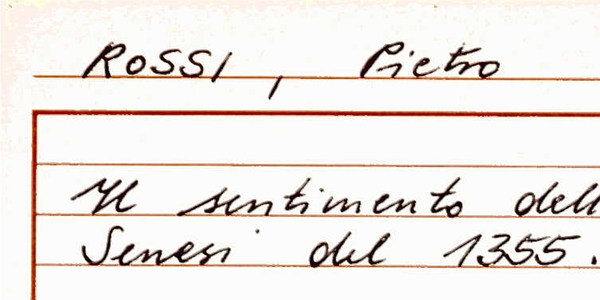 ROSSI, Pietro
Il sentimento dell
Senesi del 1355.